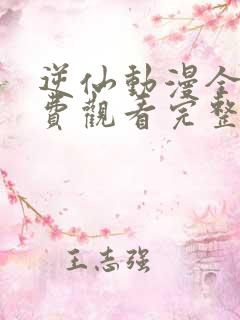 逆仙動漫全
費觀看完整
王志强